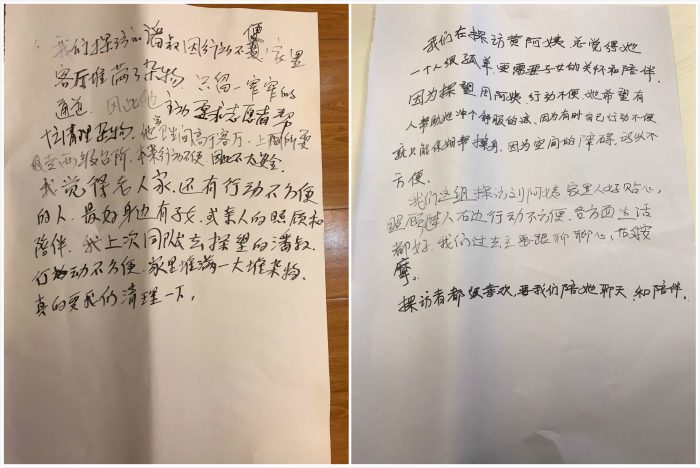 我们探访的潘叔因行动不便,家里
客厅堆满了杂物,只留一窄窄的
通道。因此他主动要求志愿者帮
忙清理杂物,他卫生间高于客厅,上厕所要
两级台阶,本来行动不便,因此不太安全。
我觉得老人家,还有行动不方便
的人。最好身边有子女,或亲人的照顾和
陪伴。我上次同队去探望的潘叔,
行动不方便,家里堆满一大堆杂物,
真的要我们清理一下。
我们在探访黄阿姨,总觉得她
一个人很孤单,更需要子女的关怀和陪伴,
因为探望用阿姨,行动不便,她希望有
人帮助她冲个舒服的凉,因为有时自己行动不便,
就只能保姆帮擦身,因为空间的障碍,所以不
方便。
我们这组探访刘阿姨,家里人好贴心,
照顾,老人右边行动不方便,各方面生活
都好,我们过去主要跟聊聊心,按
摩。
探访者都很喜欢,要我们陪她聊天,和陪伴。